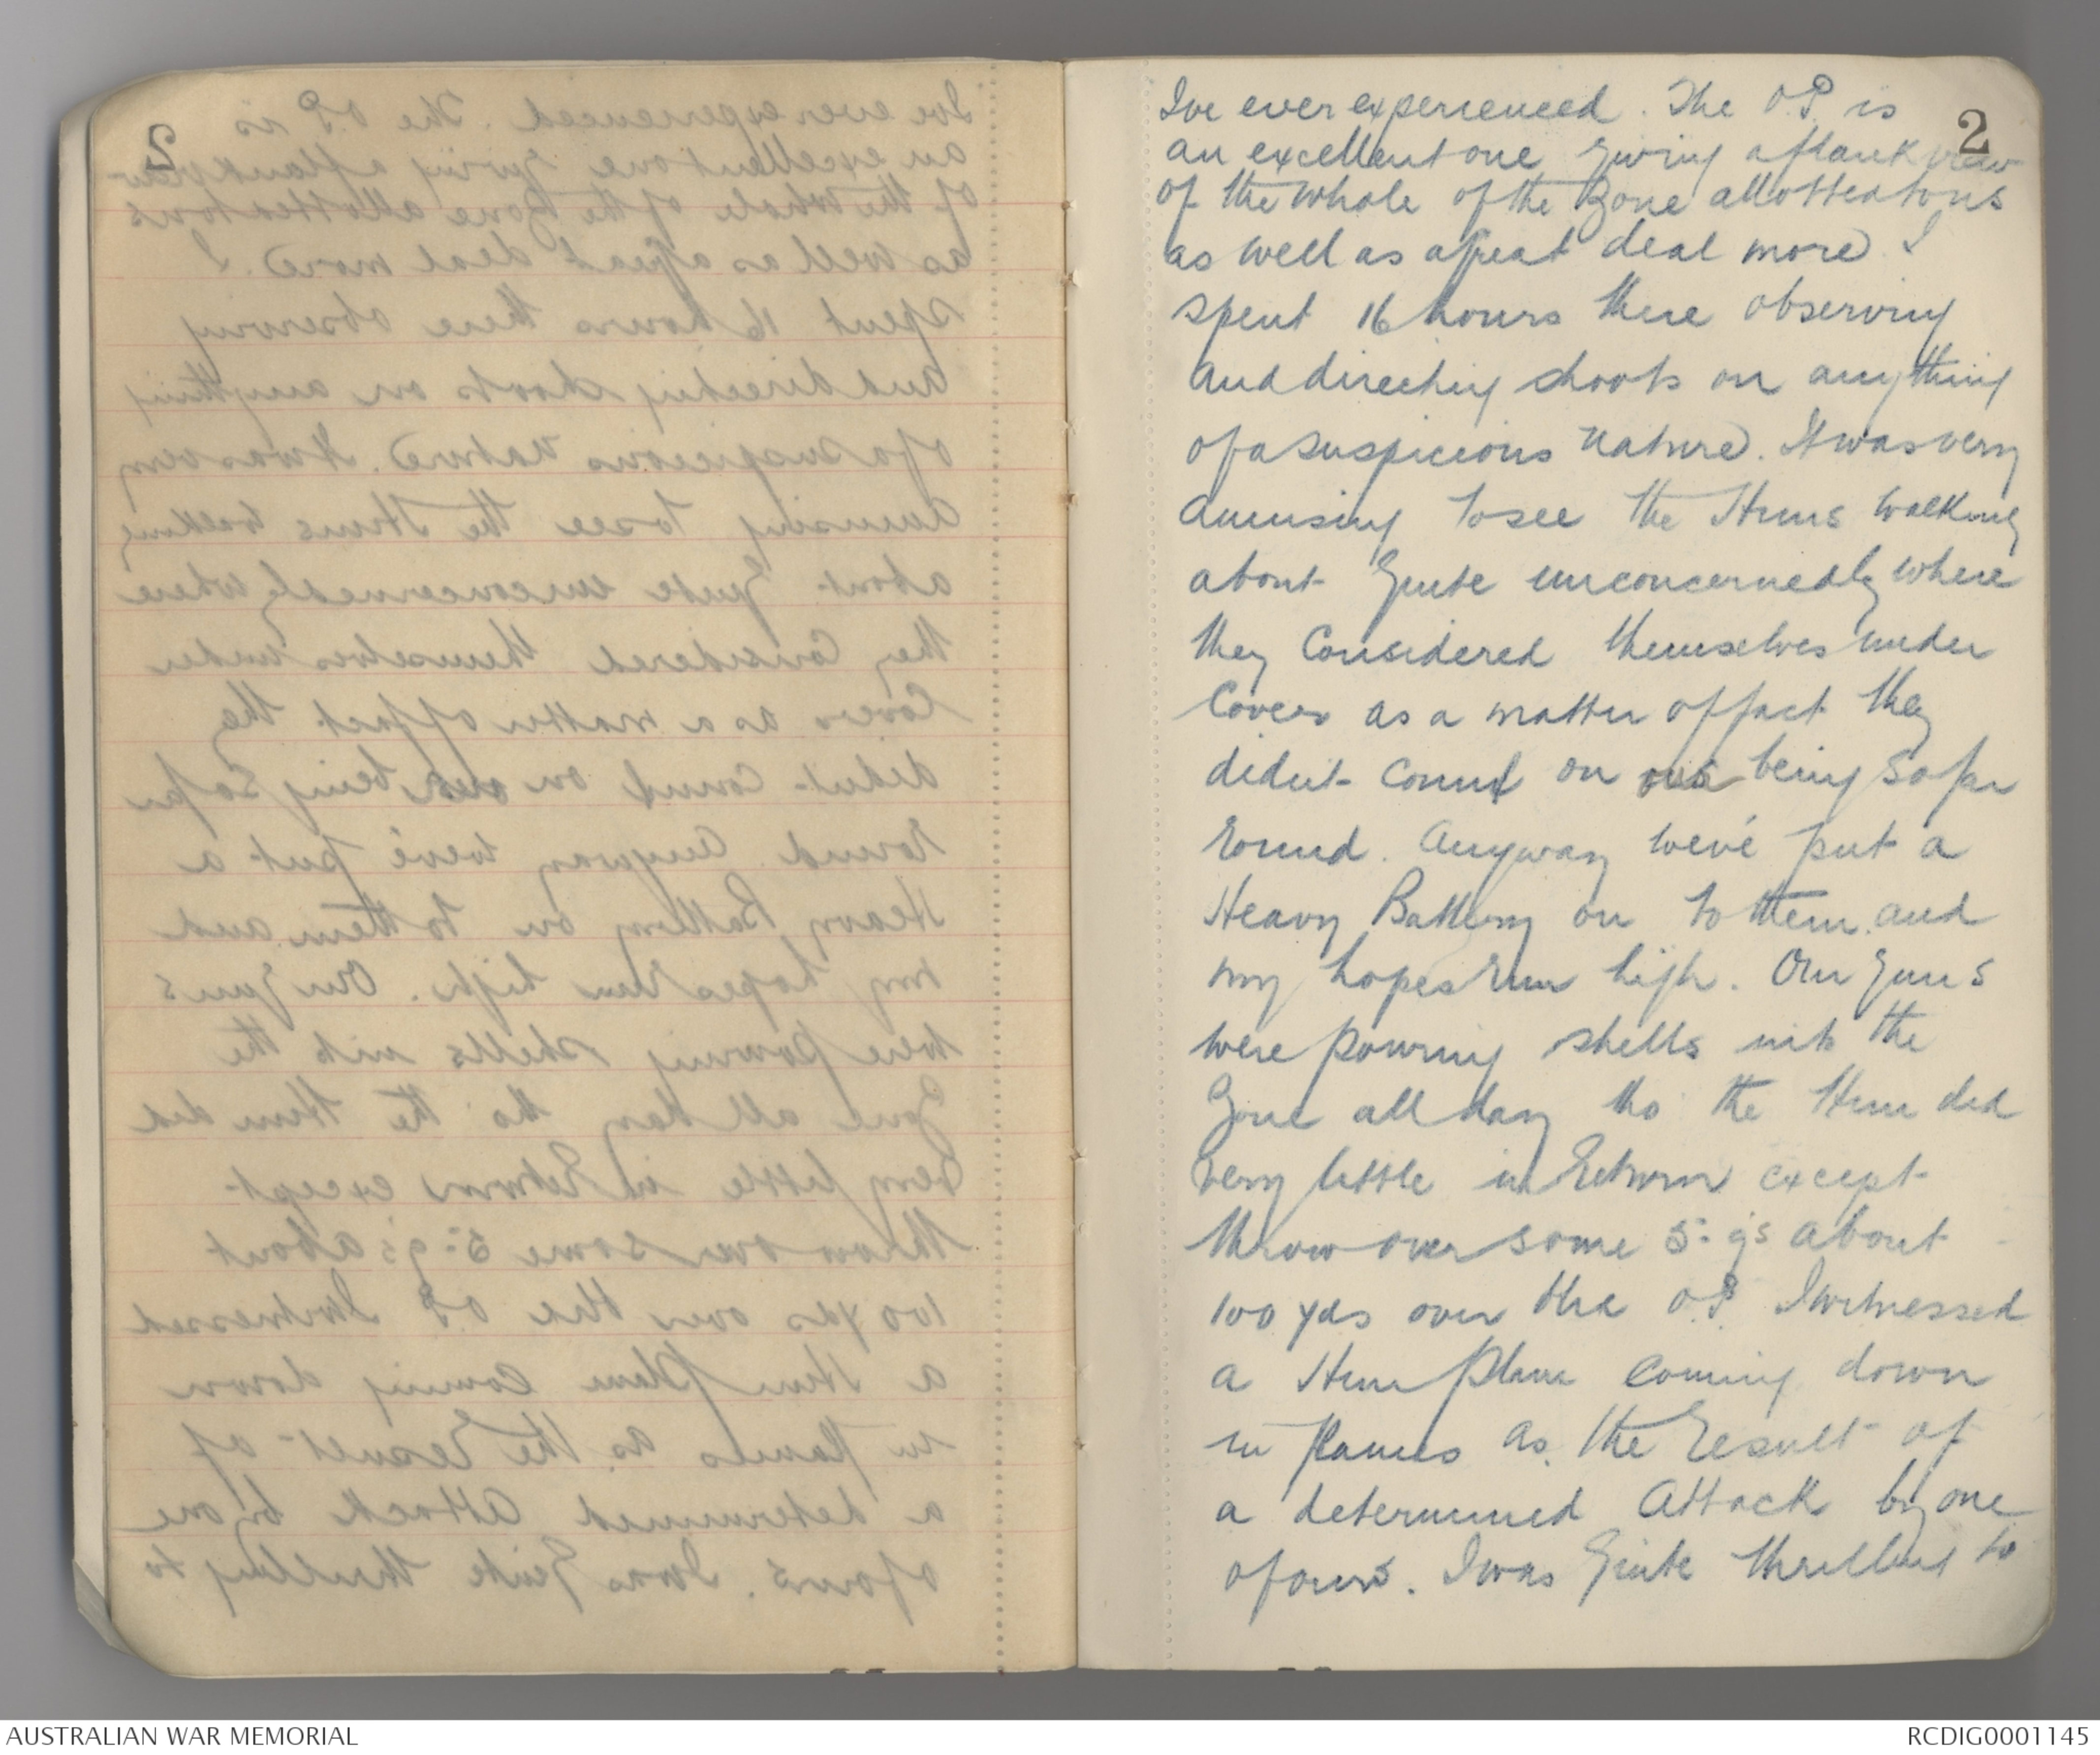 2
Ive ever experienced. The O.P. is
an excellent one giving a flank view
of the whole of the Zone allotted to us
as well as a great deal more. I
spent 16 hours there observing
and directing shoots on anything
of a suspicious nature. It was very
amusing to see the Huns walking
about quite unconcernedly where
they considered themselves under
cover as a matter of fact they
didnt count on our being so far
round. Anyway we've put a
Heavy Battery on to them and
my hopes run high. Our guns
were pouring shells into the
Zone all day tho' the Hun did
very little in return except
throw over some 5.9s about
100 yds over the O.P. I witnessed
a Hun plane coming down
in flames as the result of
a determined attack by one
of ours. I was quite thrilling to
AUSTRALIAN WAR MEMORIAL
RCDIG0001145